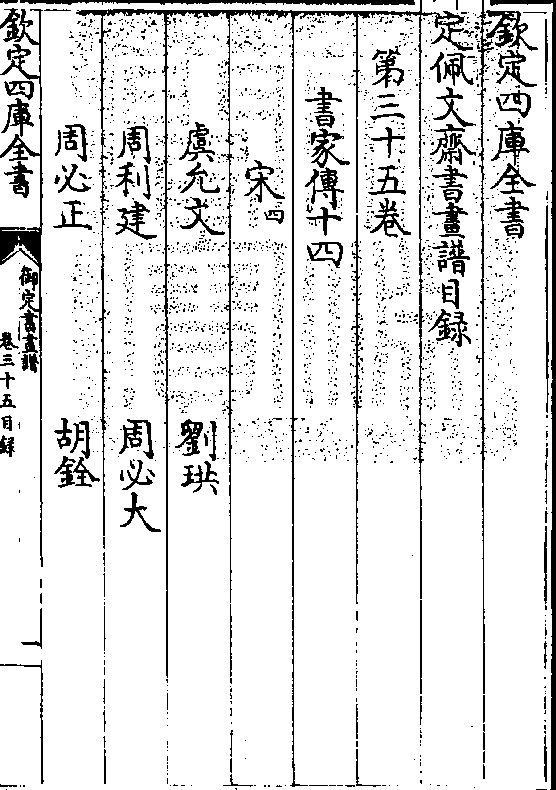 欽定四庫全書
定佩文齋書畫譜目録
第三十五卷
書家傳十四
宋四
虞允文 劉珙
周利建 周必大
周必正 胡銓
欽定四庫全書
御定書畫譜
卷三十五目録
一